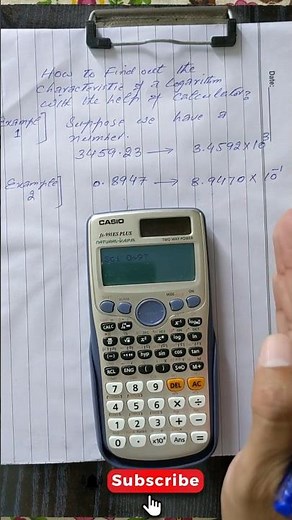 How to Find out the
Characteristic of a Logarithm
with the help of Calculator?
Example 1] Suppose we have a
number.
3459.23 → 3.4592×10³
Example 2] 0.8947 → 8.9470×10⁻¹
Date:
CASIO
fx-991ES PLUS
NATURAL-V.P.A.M.
TWO WAY POWER
CALC
log
(-)
hyp
sin
cos
tan
RCL
ENG
(
)
S⇔D
M+
7 8 9 DEL AC
4 5 6 × ÷
1 2 3 + −
0 . ×10ˣ Ans =
Subscribe